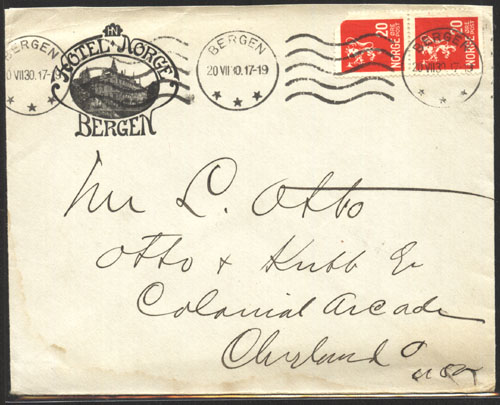 BERGEN
20 VII 30. 17-19
IN
HOTEL NORGE
BERGEN
BERGEN
20 VII 30. 17-19
20
NORGE
20
NORGE
BERGEN
20 VII 30. 17-19
Mr L. Otto
Otto &
Colonial Arcade
Cleveland O
USA